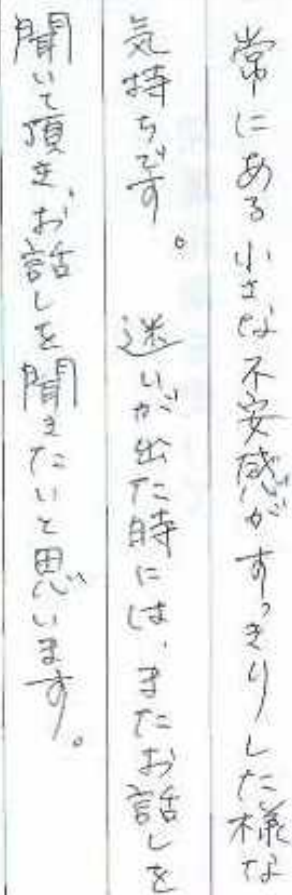 常にある小さな不安感がすっきりした様な
気持ちです。 迷いが出た時には、またお話しを
聞いて頂き、お話しを聞きたいと思います。